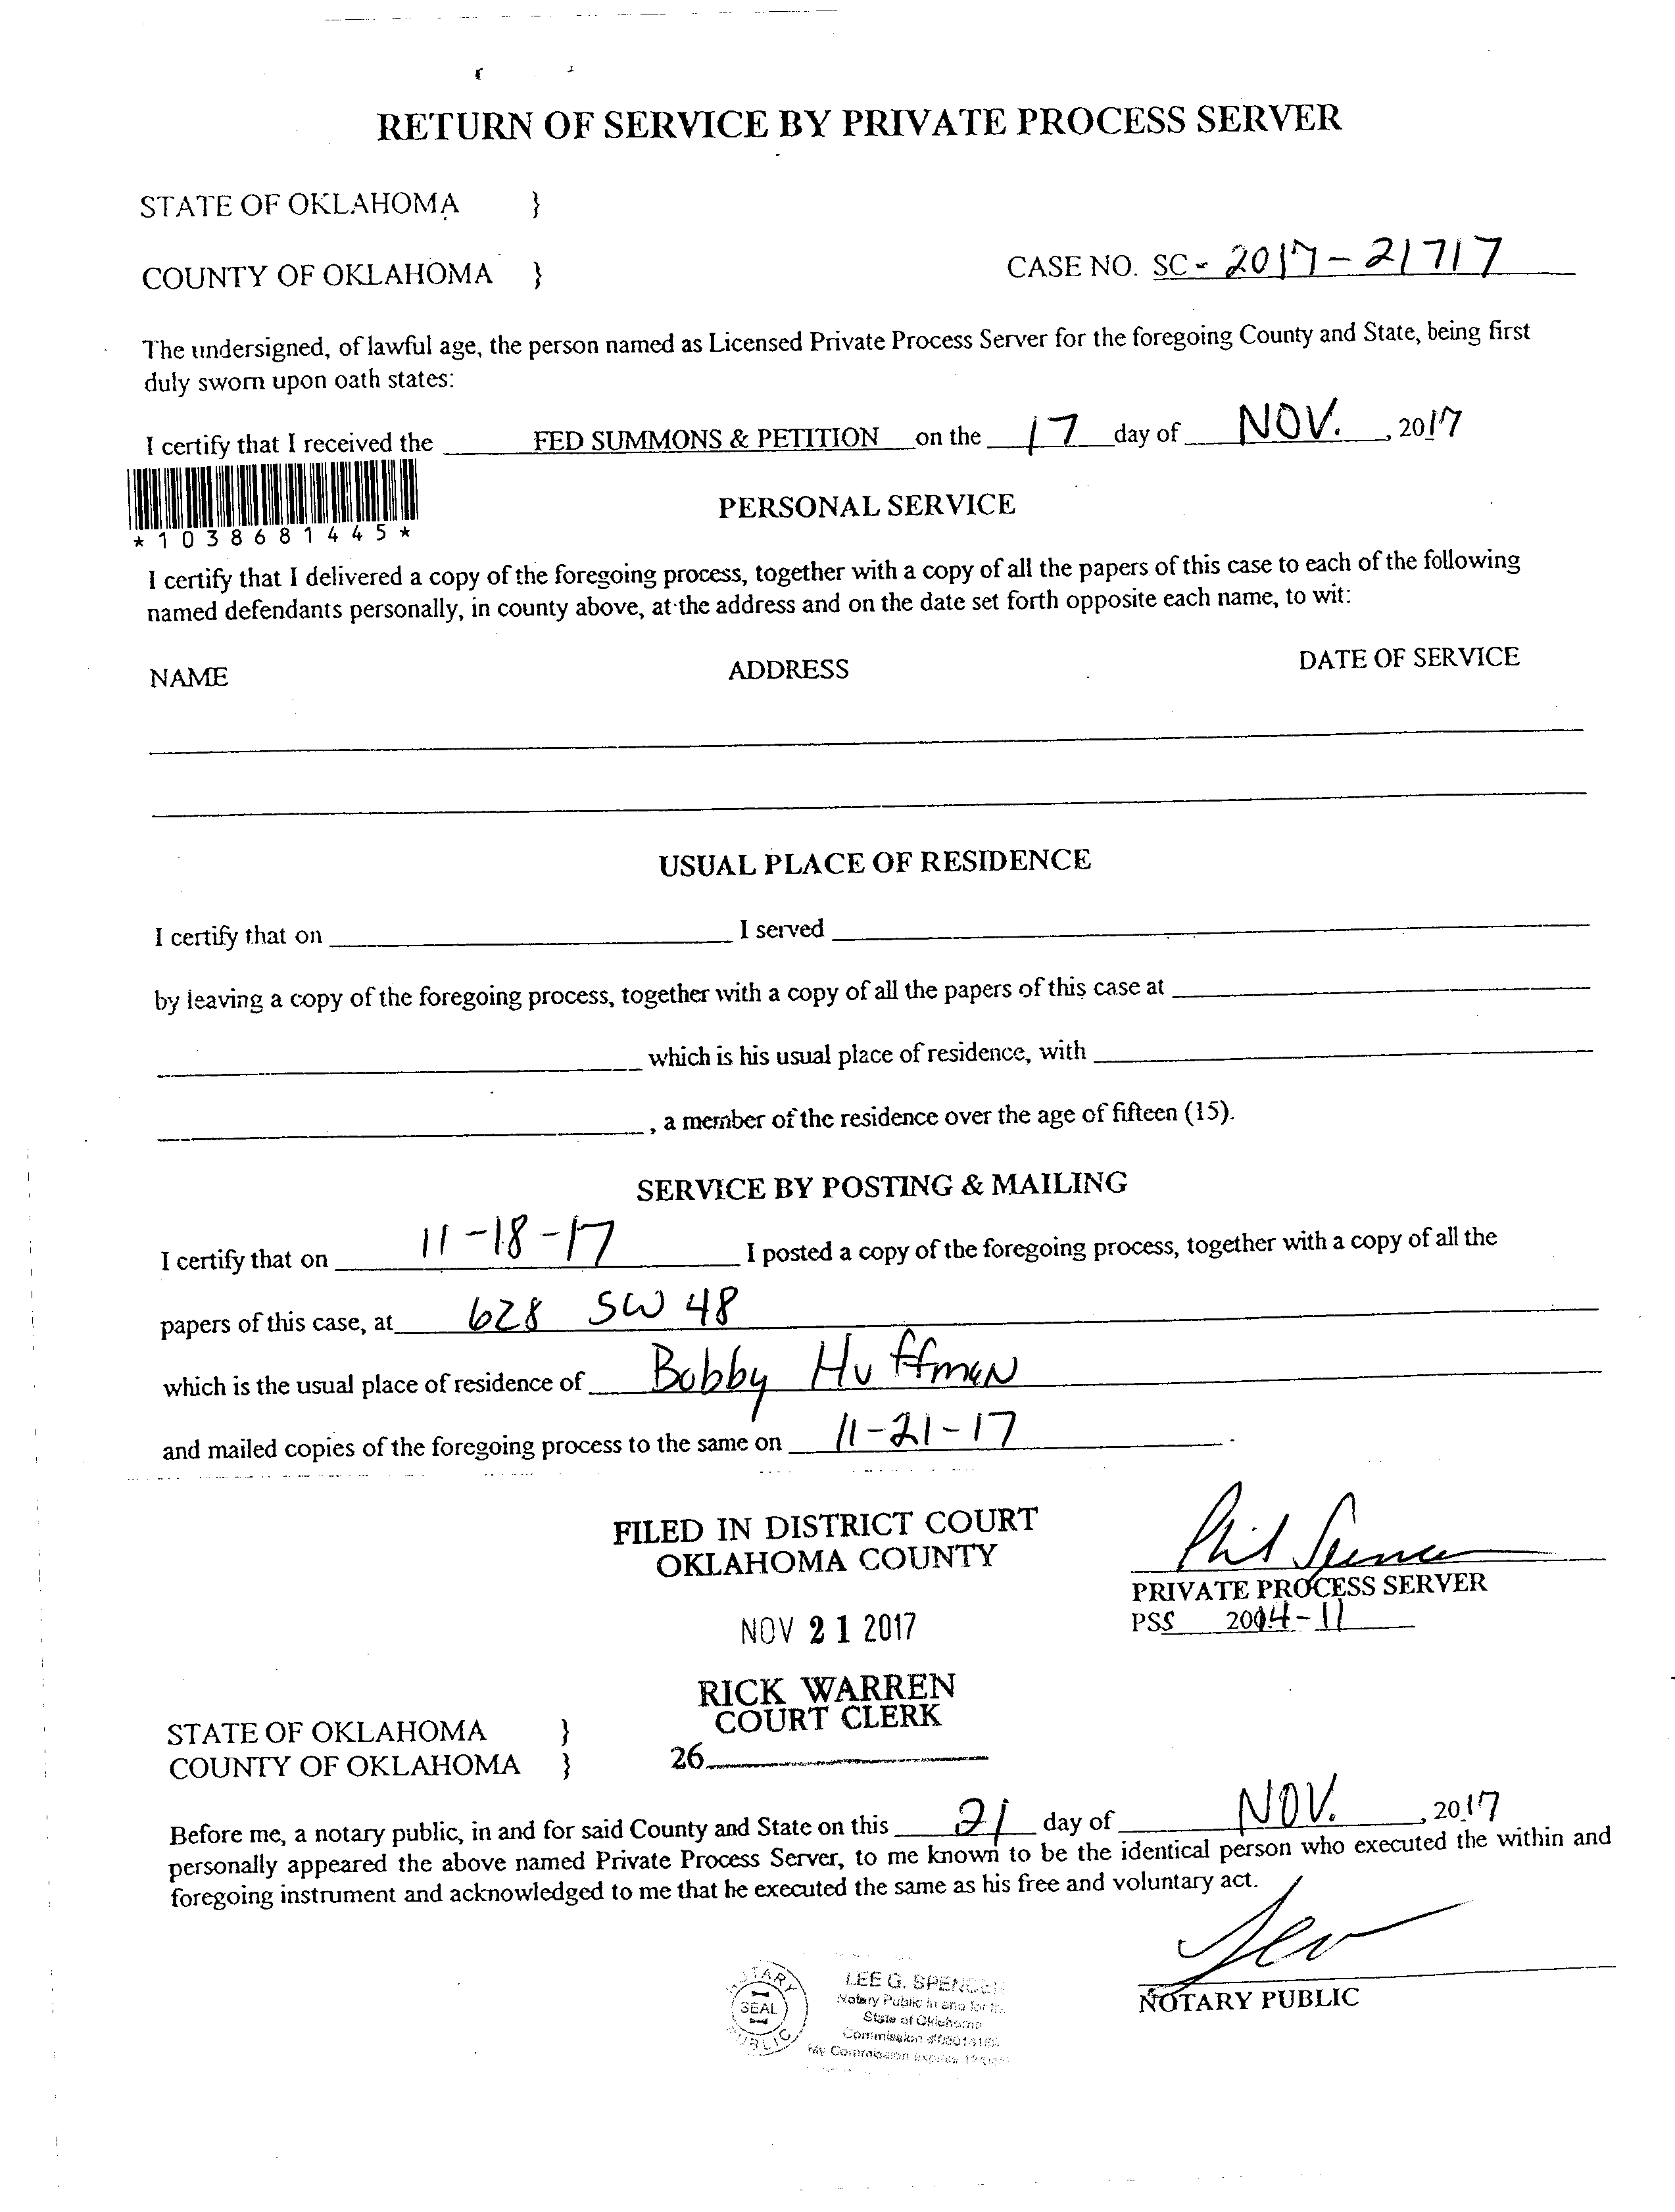 RETURN OF SERVICE BY PRIVATE PROCESS SERVER
STATE OF OKLAHOMA }
COUNTY OF OKLAHOMA } CASE NO. SC - 2017-21717
The undersigned, of lawful age, the person named as Licensed Private Process Server for the foregoing County and State, being first
duly sworn upon oath states:
I certify that I received the FED SUMMONS & PETITION on the 17 day of NOV. , 2017
*1038681445*
PERSONAL SERVICE
I certify that I delivered a copy of the foregoing process, together with a copy of all the papers of this case to each of the following
named defendants personally, in county above, at the address and on the date set forth opposite each name, to wit:
NAME ADDRESS DATE OF SERVICE
USUAL PLACE OF RESIDENCE
I certify that on I served
by leaving a copy of the foregoing process, together with a copy of all the papers of this case at
which is his usual place of residence, with
, a member of the residence over the age of fifteen (15).
SERVICE BY POSTING & MAILING
I certify that on 11-18-17 I posted a copy of the foregoing process, together with a copy of all the
papers of this case, at 628 SW 48
which is the usual place of residence of Bobby Huffman
and mailed copies of the foregoing process to the same on 11-21-17 .
FILED IN DISTRICT COURT
OKLAHOMA COUNTY
NOV 21 2017
RICK WARREN
COURT CLERK
26
Phil Spencer
PRIVATE PROCESS SERVER
PSS 2004-11
STATE OF OKLAHOMA }
COUNTY OF OKLAHOMA }
Before me, a notary public, in and for said County and State on this 21 day of NOV. , 2017
personally appeared the above named Private Process Server, to me known to be the identical person who executed the within and
foregoing instrument and acknowledged to me that he executed the same as his free and voluntary act.
NOTARY PUBLIC
NOTARY
SEAL
PUBLIC
LEE G. SPENCER
Notary Public in and for the
State of Oklahoma
Commission
My Commission expires